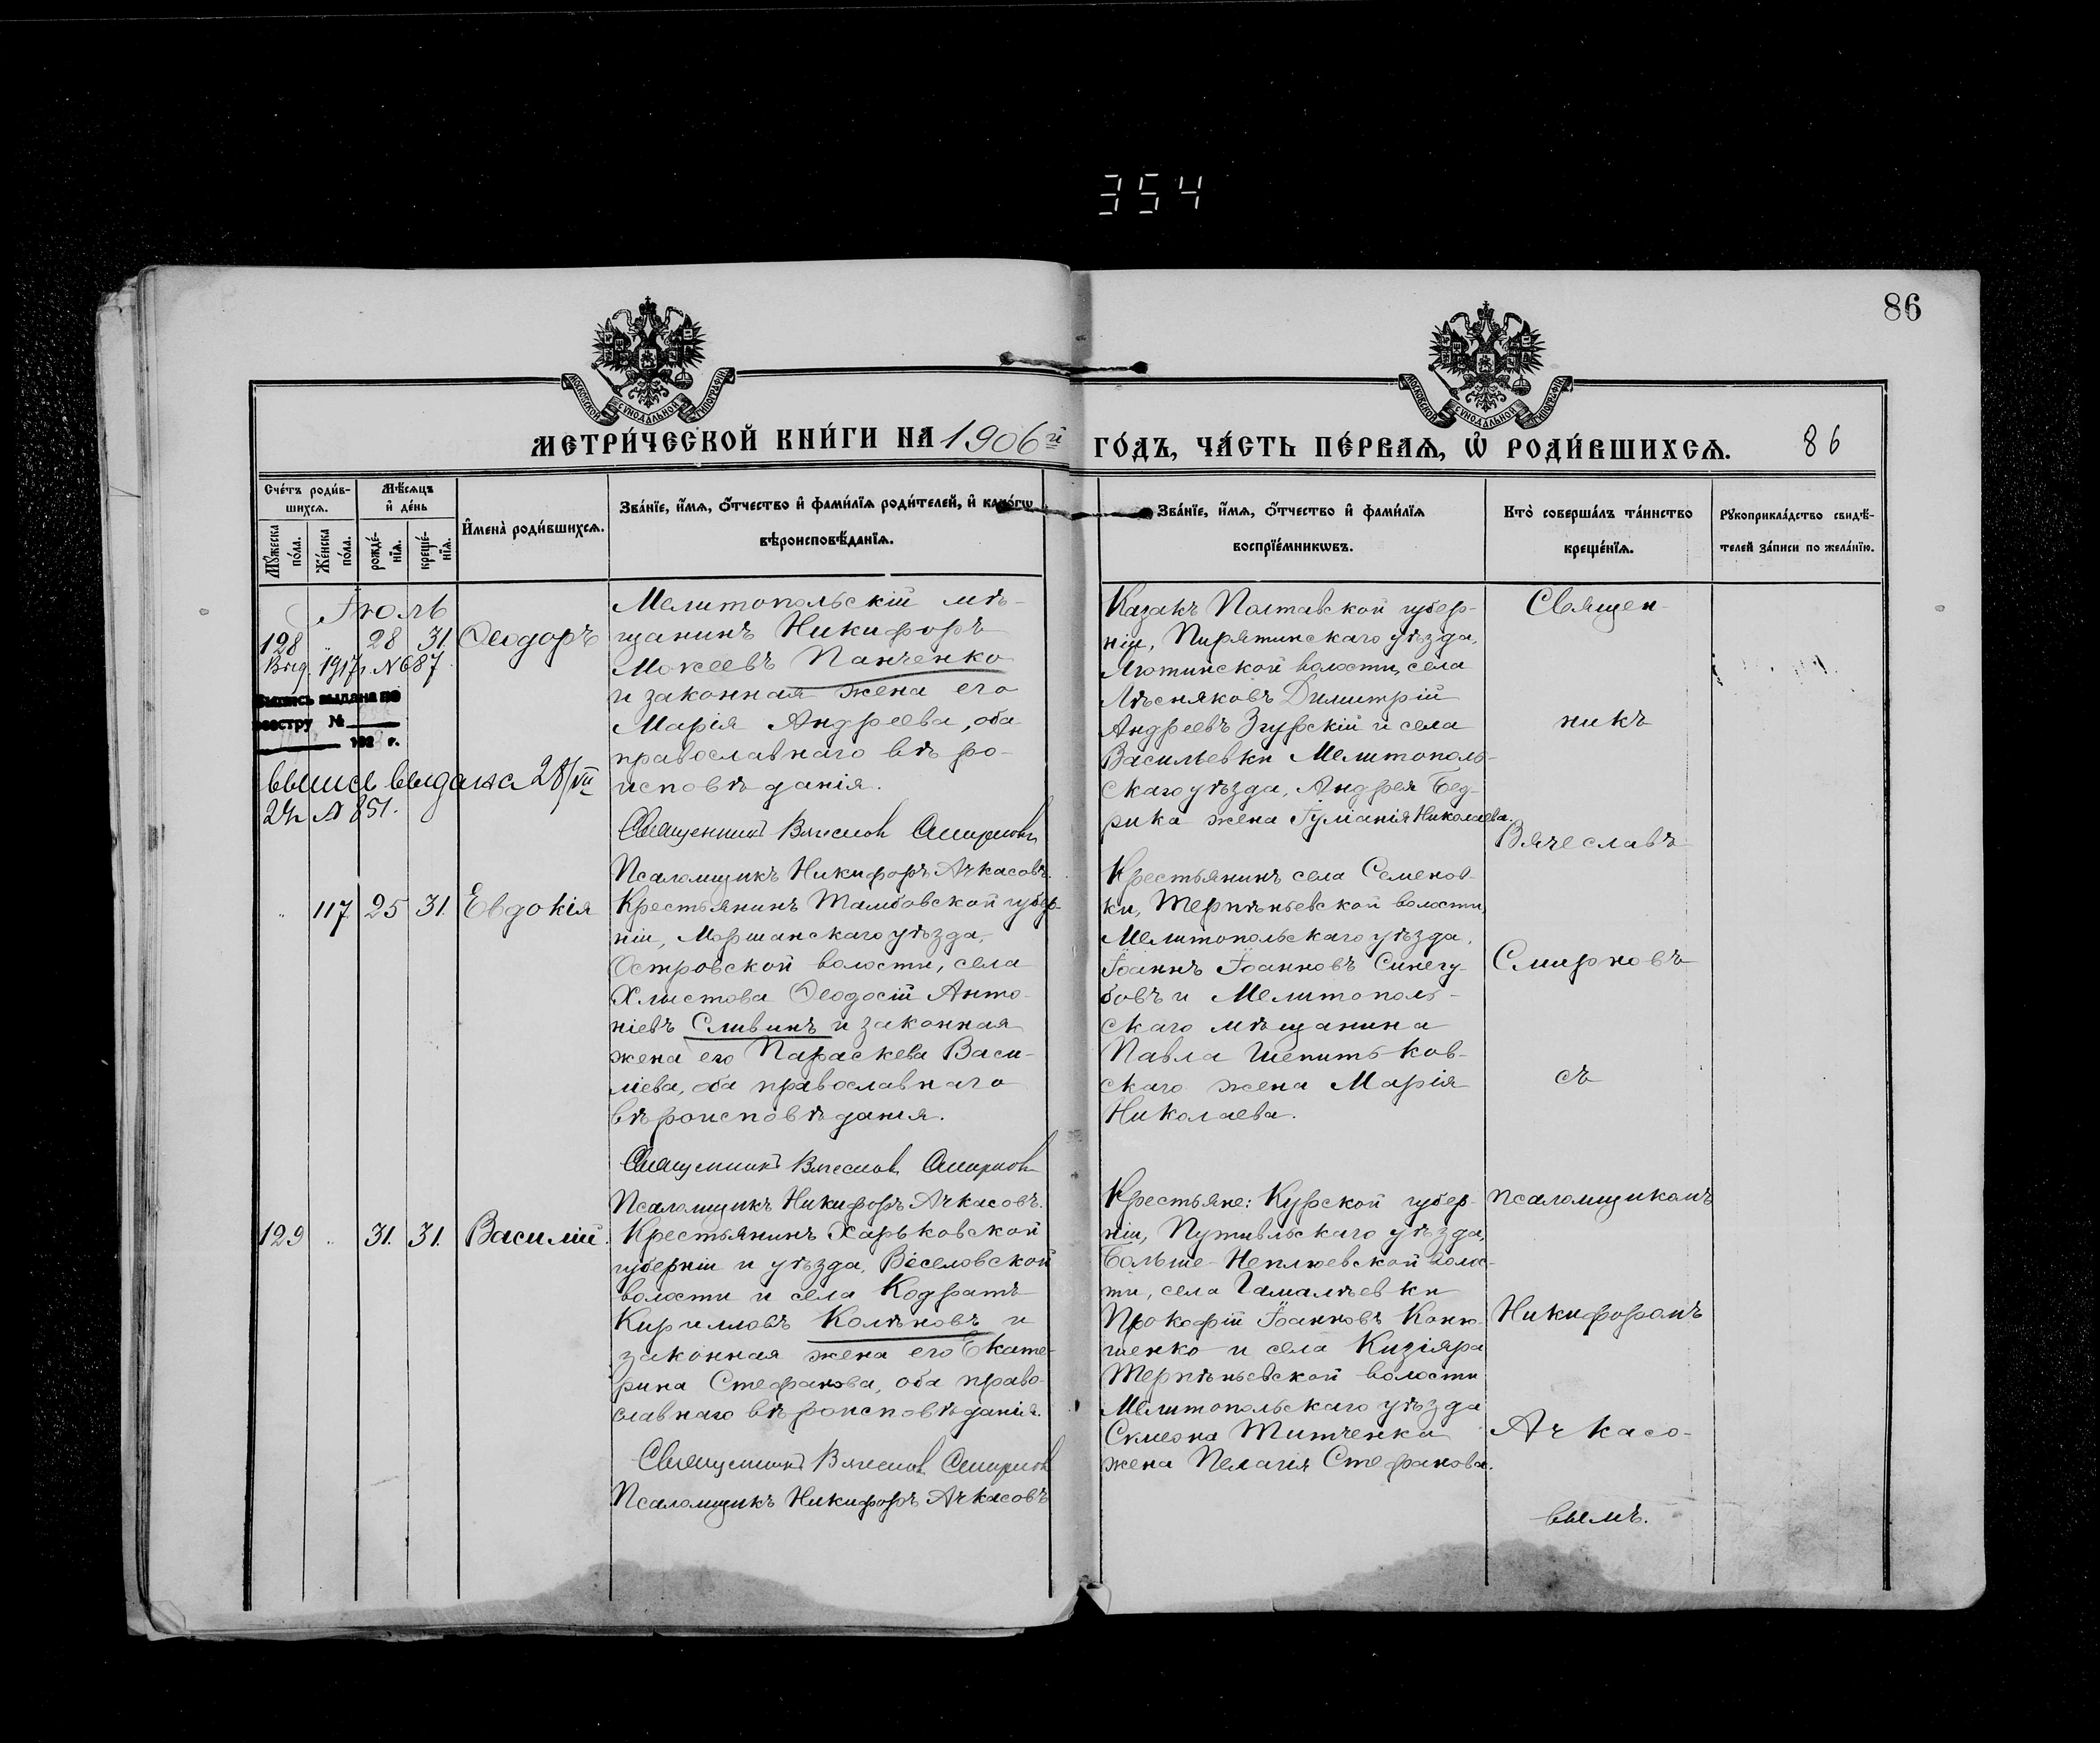 354
86
МОСКОВСКОЙ СѴНОДАЛЬНОЙ ТИПОГРАФІИ
МОСКОВСКОЙ СѴНОДАЛЬНОЙ ТИПОГРАФІИ
МЕТРИ́ЧЕСКОЙ КНИ́ГИ НА 1906й ГО́ДЪ, ЧА́СТЬ ПЕ́РВАѦ, Ѡ҆ РОДИ́ВШИХСѦ. 86
Сче́тъ роди́в-
шихсѧ.
Мѣ́сѧцъ
и҆ де́нь
Мꙋ́жеска
по́ла.
Же́нска
по́ла.
рожде́-
нїѧ.
креще́-
нїѧ.
И҆мена̀ роди́вшихсѧ.
Зва́нїе, и҆́мѧ, ѻ҆́тчество и҆ фами́лїѧ роди́телей, и҆ како́гѡ
вѣроисповѣ́данїѧ.
Зва́нїе, и҆́мѧ, ѻ҆́тчество и҆ фами́лїѧ
воспрїе́мникѡвъ.
Кто̀ соверша́лъ та́инство
креще́нїѧ.
Рꙋкоприкла́дство свидѣ́-
телей за́писи по жела́нїю.
Іюль
128 " 28 31. Ѳеодоръ
Выд. 1917г. №687
Выпись выдана по
реестру №
192 г.
выпись выдана 28/VII
24г № 851.
Мелитопольскій мѣ-
щанинъ Никифоръ
Мокеевъ Панченко
и законная жена его
Марія Андреева, оба
православнаго вѣро-
исповѣданія.
Священникъ Вячеслав Смирновъ
Псаломщикъ Никифоръ Ачкасовъ.
Казакъ Полтавской губер-
ніи, Пирятинскаго уѣзда,
Яготинской волости, села
Лѣсняковъ Димитрій
Андреевъ Згурскій и села
Васильевки Мелитополь-
скаго уѣзда, Андрея Бед-
рика жена Іуліанія Николаева.
" 117 25 31. Евдокія
Крестьянинъ Тамбовской губер-
ніи, Моршанскаго уѣзда,
Островской волости, села
Хлыстова Ѳеодосій Анто-
ніевъ Сливинъ и законная
жена его Параскева Васи-
ліева, оба православнаго
вѣроисповѣданія.
Священникъ Вячеслав Смирнов
Псаломщикъ Никифоръ Ачкасовъ.
Крестьянинъ села Семенов-
ки, Терпѣньевской волости,
Мелитопольскаго уѣзда,
Іоаннъ Іоанновъ Синегу-
бовъ и Мелитополь-
скаго мѣщанина
Павла Шепитьков-
скаго жена Марія
Николаева.
129 " 31. 31. Василій.
Крестьянинъ Харьковской
губерніи и уѣзда, Веселовской
волости и села Кодратъ
Кирилловъ Колѣновъ и
законная жена его Екате-
рина Стефанова, оба право-
славнаго вѣроисповѣданія.
Священникъ Вячеслав Смирнов
Псаломщикъ Никифоръ Ачкасовъ
Крестьяне: Курской губер-
ніи, Путивльскаго уѣзда,
Больше-Неплюевской волос-
ти, села Гамалѣевки
Прокофій Іоанновъ Коню-
шенко и села Кизіяра
Терпѣньевской волости
Мелитопольскаго уѣзда
Симеона Титченка
жена Пелагія Стефанова.
Священ-
никъ
Вячеславъ
Смирновъ
съ
псаломщикомъ
Никифоромъ
Ачкасо-
вымъ.